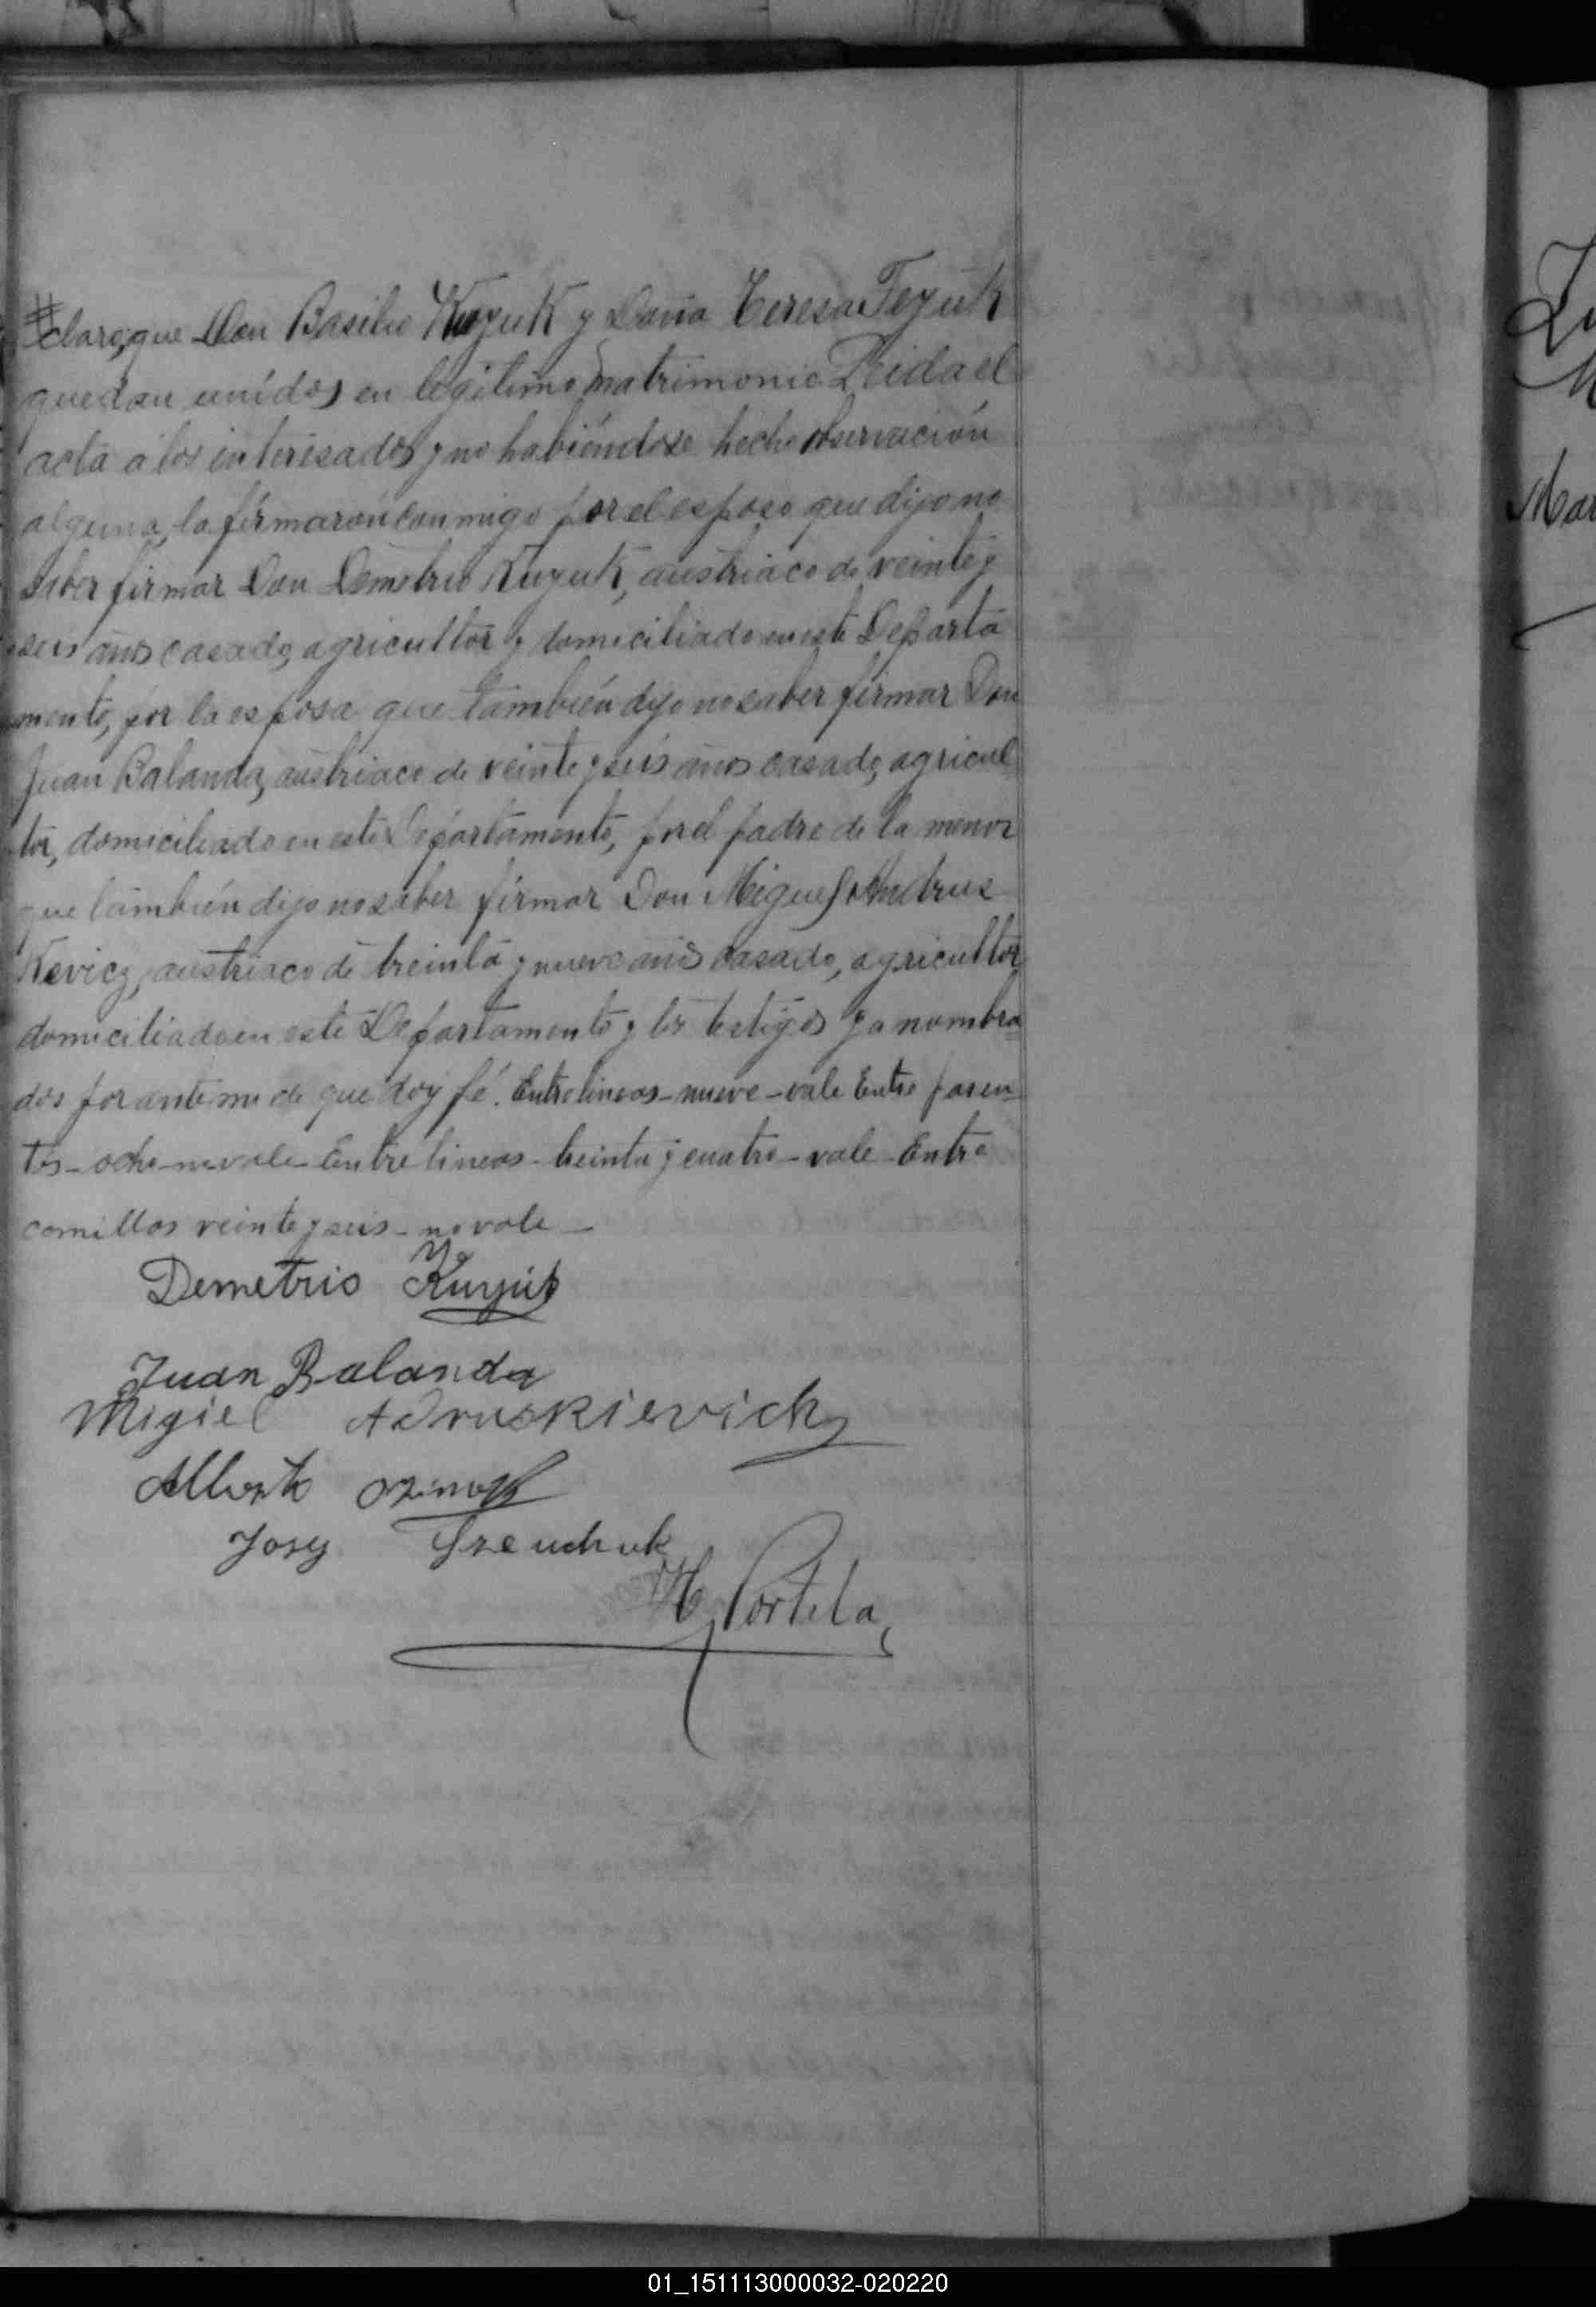 claro, que Don Basilio Kuzuk y Doña Teresa Tezuk
quedan unidos en legítimo matrimonio. Leida el
acta á los interesados y no habiéndose hecho observación
alguna, la firmarón conmigo por el esposo que dijo no
saber firmar Don Demetrio Kuzuk, austriaco de veinte y
seis años casado, agricultor y domiciliado en este Departa
mento, por la esposa que también dijo no saber firmar Don
Juan Balanda, austriaco de veinte y seis años casado, agricul
tor, domiciliado en este Departamento, por el padre de la menor
que también dijo no saber firmar Don Miguel Andrus
Kevicz, austriaco de treinta y nueve años casado, agricultor
domiciliado en este Departamento y los testigos ya nombra
dos por ante mi de que doy fé. Entre lineas - nueve - vale Entre paren
tes - ocho - no vale - Entre lineas - treinta y cuatro - vale - Entre
comillas veinte y seis - no vale -
Demetrio
Juan Balanda
Migiel Adruskievich
Alberto
Josy
Portela
Mar
01_151113000032-020220